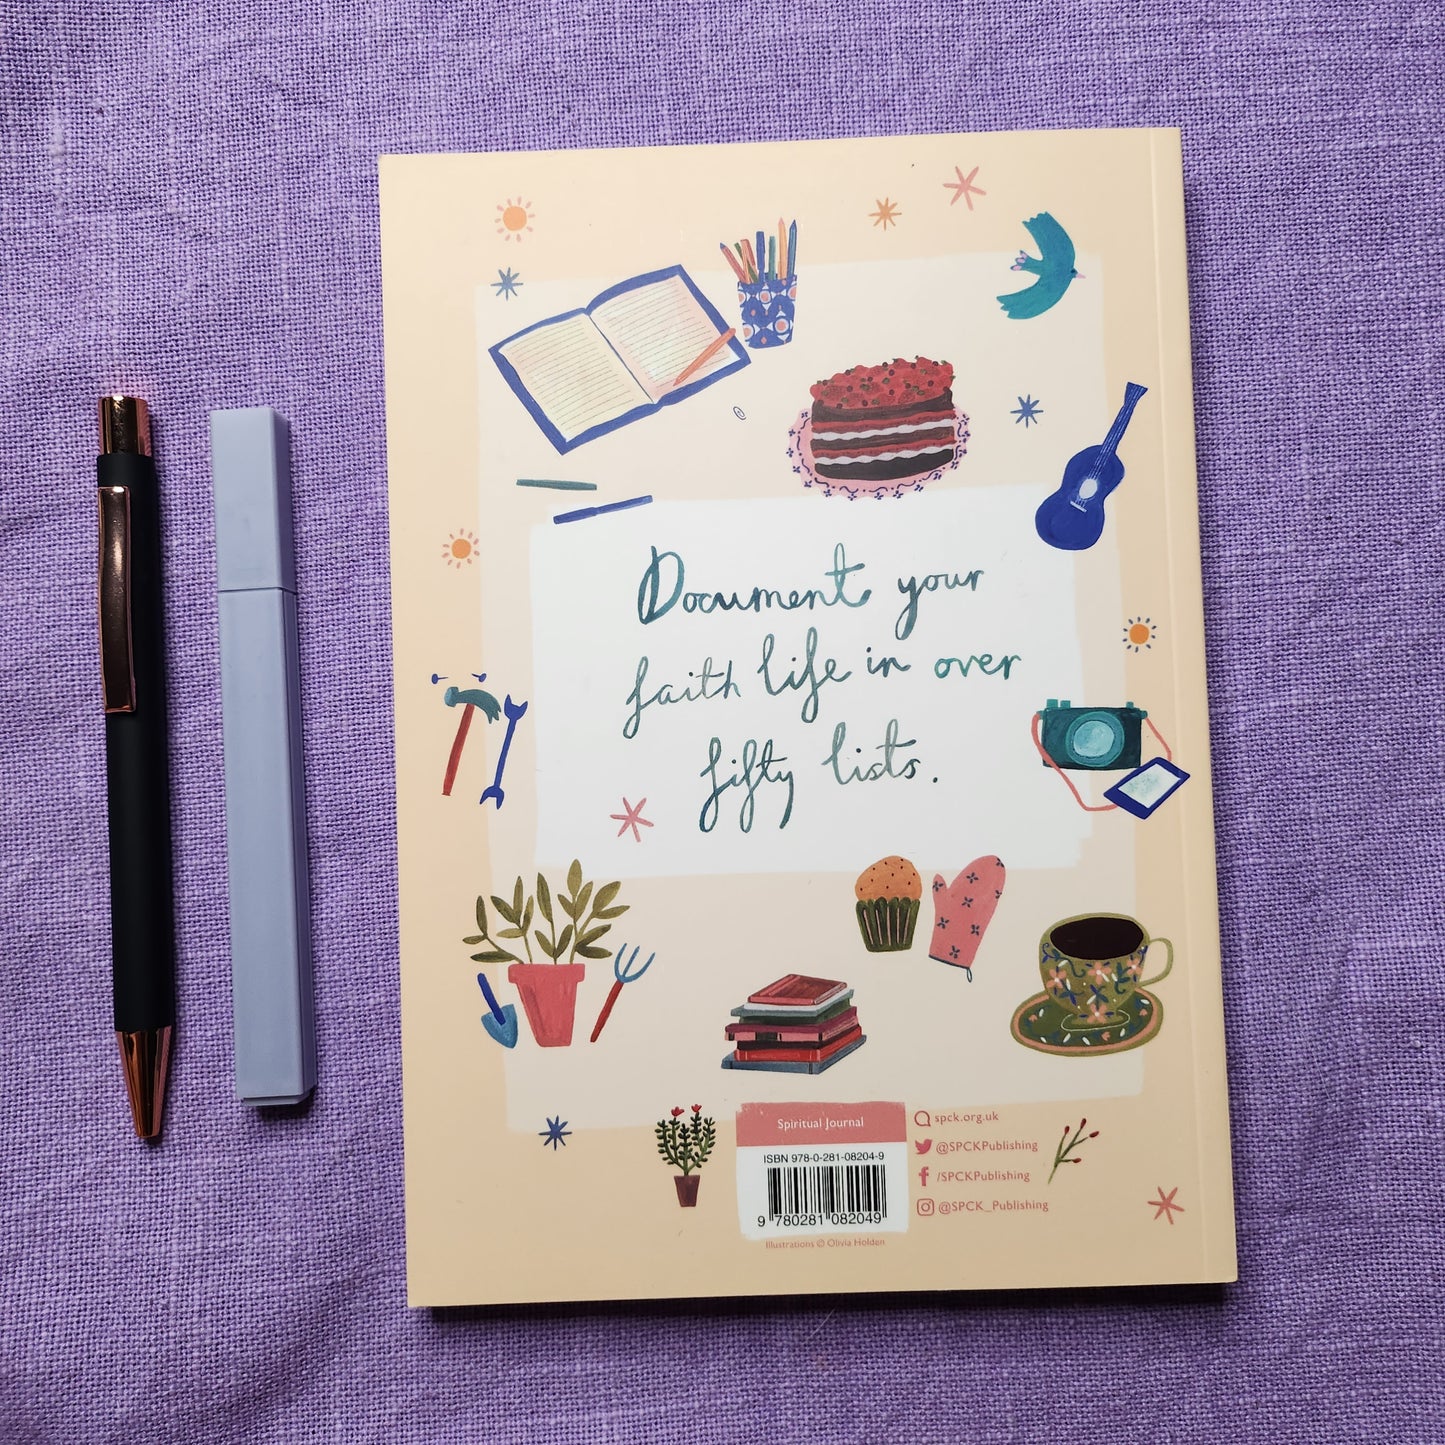 Document your
faith life in over
fifty lists.
Spiritual Journal
ISBN 978-0-281-08204-9
9 780281 082049
Illustrations © Olivia Holden
spck.org.uk
@SPCKPublishing
/SPCKPublishing
@SPCK_Publishing